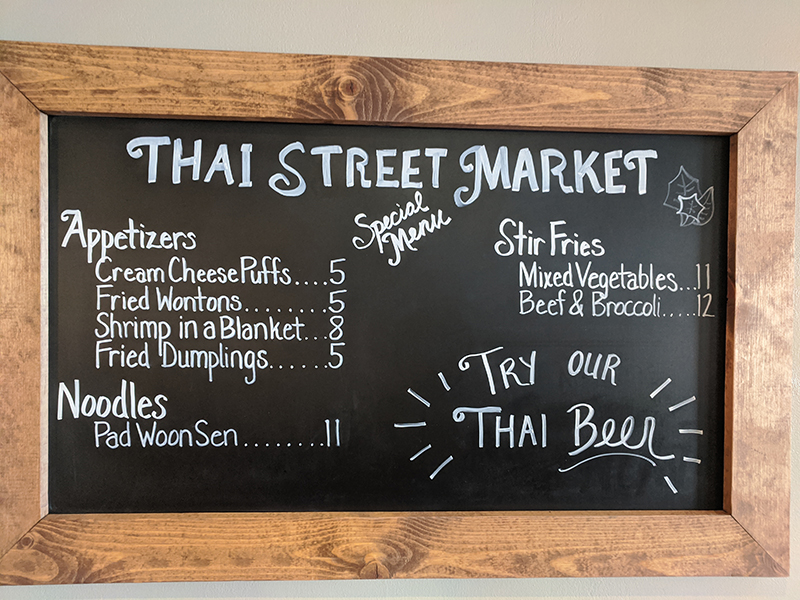 THAI STREET MARKET
Special
Menu
Appetizers
Cream Cheese Puffs....5
Fried Wontons.........5
Shrimp in a Blanket...8
Fried Dumplings.......5
Noodles
Pad Woon Sen.........11
Stir Fries
Mixed Vegetables...11
Beef & Broccoli.....12
TRY OUR
THAI Beer